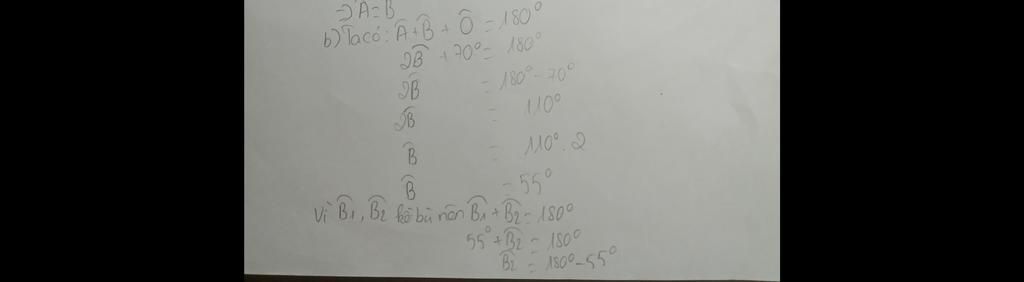 ⇒ Â = B̂
b) Ta có: Â + B̂ + Ô = 180°
2B̂ + 70° = 180°
2B̂ = 180° - 70°
2B̂ = 110°
B̂ = 110° . 2
B̂ = 55°
Vì B̂1, B̂2 kề bù nên B̂1 + B̂2 = 180°
55° + B̂2 = 180°
B̂2 = 180° - 55°